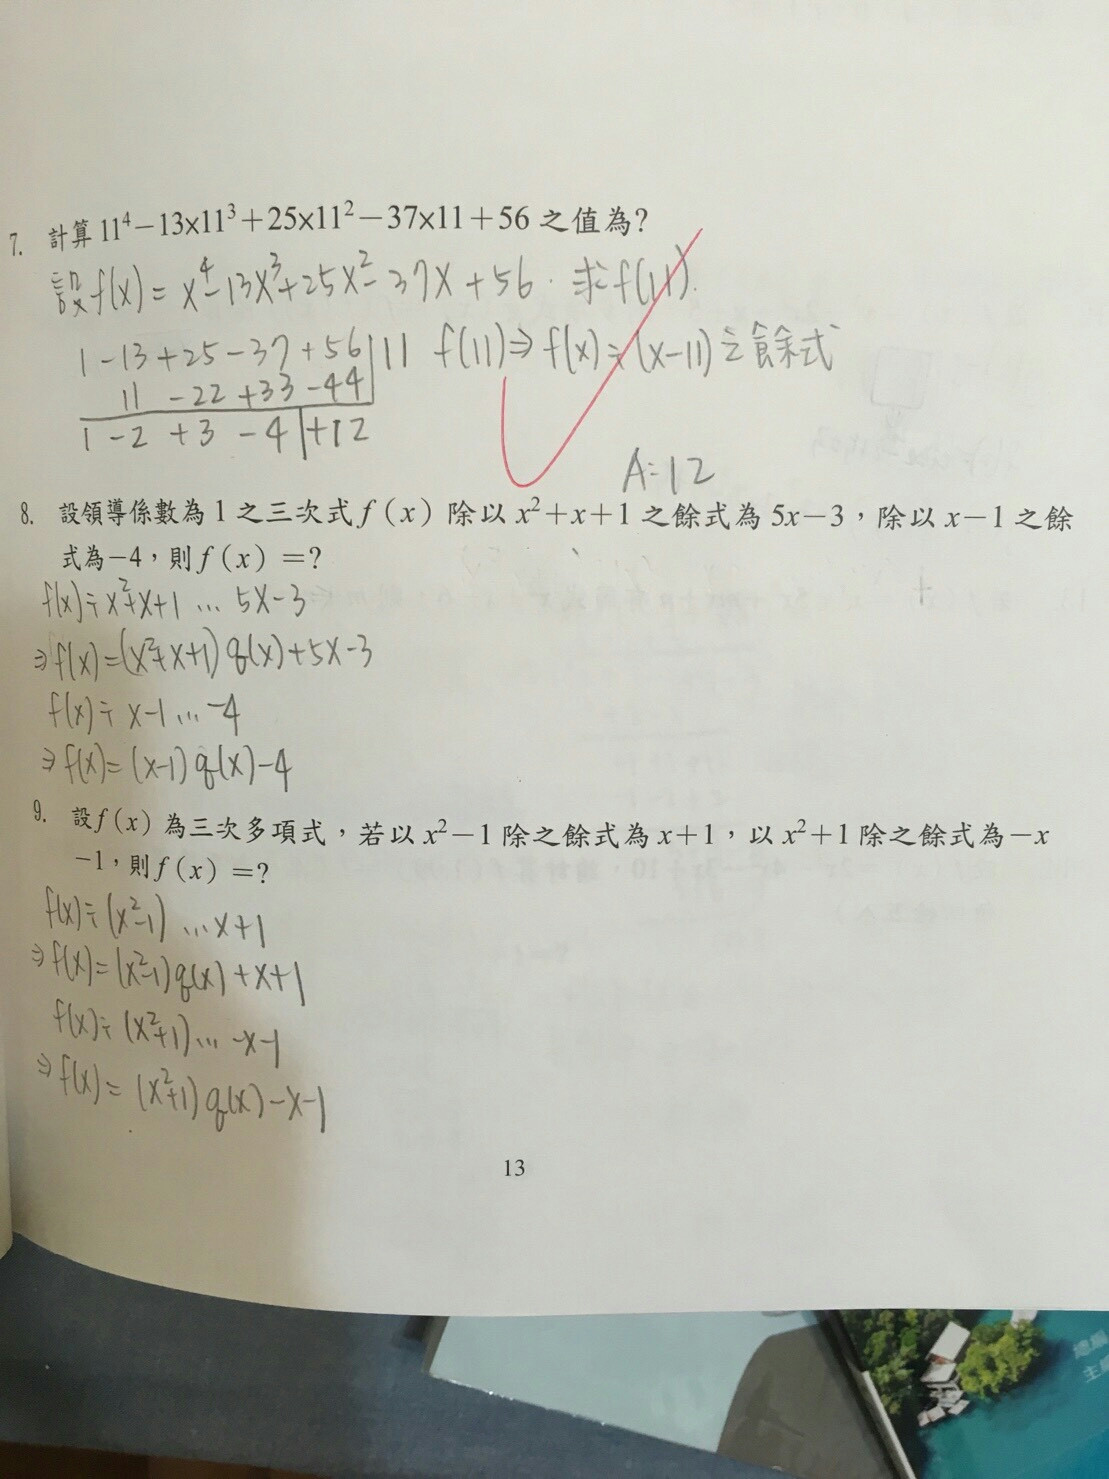 7. 計算 11⁴－13×11³＋25×11²－37×11＋56 之值為?
設f(x)= x⁴-13x³+25x²-37x+56. 求f(11).
1-13+25-37+56|11 f(11)⇒f(x)÷(x-11)之餘式
11 -22 +33 -44
1 -2 +3 -4 |+12
A:12
8. 設領導係數為 1 之三次式 f(x) 除以 x²＋x＋1 之餘式為 5x－3，除以 x－1 之餘
式為－4，則 f(x) ＝?
f(x)÷x²+x+1 ... 5x-3
⇒f(x)=(x²+x+1)q(x)+5x-3
f(x)÷x-1...-4
⇒f(x)=(x-1)q(x)-4
9. 設 f(x) 為三次多項式，若以 x²－1 除之餘式為 x＋1，以 x²＋1 除之餘式為－x
－1，則 f(x) ＝?
f(x)÷(x²-1) ...x+1
⇒f(x)=(x²-1)q(x)+x+1
f(x)÷(x²+1)... -x-1
⇒f(x)=(x²+1)q(x)-x-1
13